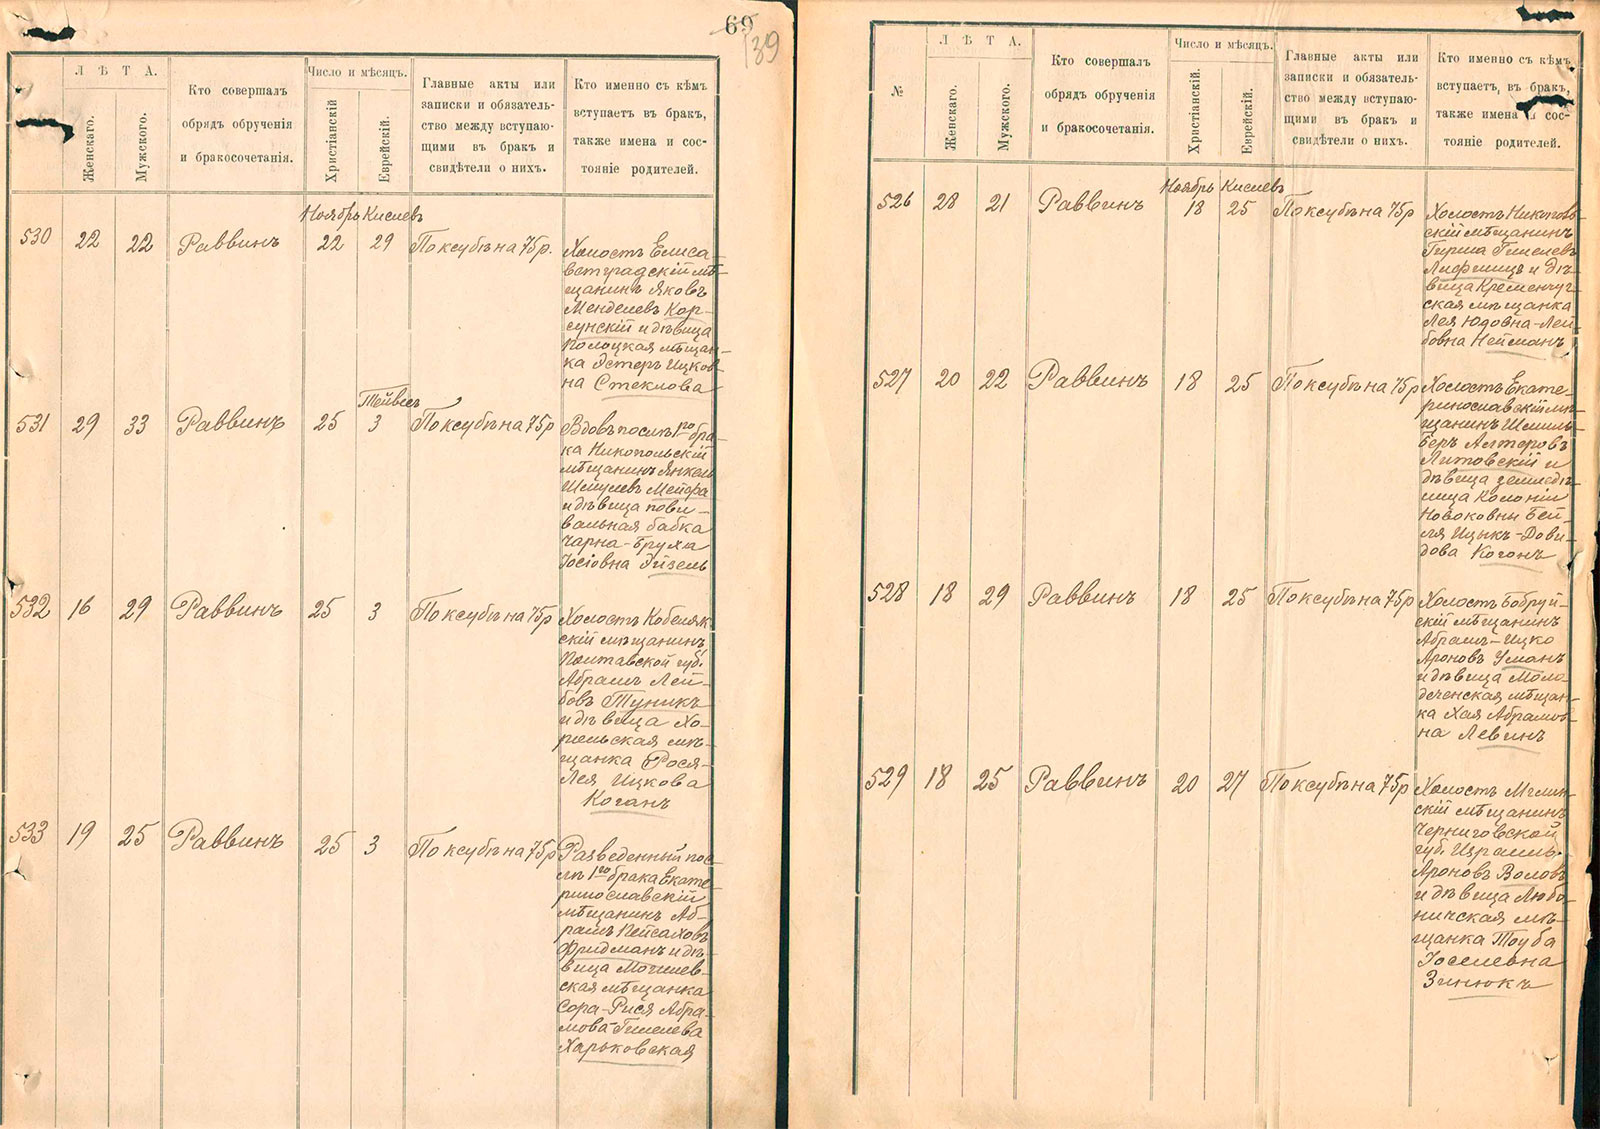 69
139
Л Ѣ Т А.
Женскаго.
Мужского.
Кто совершалъ
обрядъ обрученія
и бракосочетанія.
Число и мѣсяцъ.
Христіанскій
Еврейскій.
Главные акты или
записки и обязатель-
ство между вступаю-
щими въ бракъ и
свидѣтели о нихъ.
Кто именно съ кѣмъ
вступаетъ въ бракъ,
также имена и сос-
тояніе родителей.
Ноябрь Кислевъ
530 22 22 Раввинъ 22 29 По ксубѣ на 75 р.
Холостъ Елиса-
ветградскій мѣ-
щанинъ Яковъ
Менделевъ Кор-
сунскій и дѣвица
Полоцкая мѣщан-
ка Эстеръ Ицков-
на Стеклова
Тейвесъ
531 29 33 Раввинъ 25 3 По ксубѣ на 75 р
Вдовъ послѣ 1го бра-
ка Никопольскій
мѣщанинъ Янкель
Шмулевъ Мейфа
и дѣвица пови-
вальная бабка
Чарна-Бруха
Іосіовна Эйзель
532 16 29 Раввинъ 25 3 По ксубѣ на 75 р
Холостъ Кобеляк-
скій мѣщанинъ
Полтавской губ.
Абрамъ Лей-
бовъ Туникъ
и дѣвица Хо-
рольская мѣ-
щанка Рося-
Лея Ицкова
Коганъ
533 19 25 Раввинъ 25 3 По ксубѣ на 75 р
Разведенный пос-
лѣ 1го брака Екате-
ринославскій
мѣщанинъ Аб-
рамъ Пейсаховъ
Фридманъ и дѣ-
вица Могилев-
ская мѣщанка
Сора-Рися Абра-
мова-Гилелева
Харьковская
№
Л Ѣ Т А.
Женскаго.
Мужского.
Кто совершалъ
обрядъ обрученія
и бракосочетанія.
Число и мѣсяцъ.
Христіанскій.
Еврейскій.
Главные акты или
записки и обязатель-
ство между вступаю-
щими въ бракъ и
свидѣтели о нихъ.
Кто именно съ кѣмъ
вступаетъ въ бракъ,
также имена и сос-
тояніе родителей.
Ноябрь Кислевъ
526 28 21 Раввинъ 18 25 По ксубѣ на 75 р
Холостъ Никополь-
скій мѣщанинъ
Гирша Гилелевъ
Лифшицъ и дѣ-
вица Кременчуг-
ская мѣщанка
Лея Юдовна-Лей-
бовна Нейманъ
527 20 22 Раввинъ 18 25 По ксубѣ на 75 р
Холостъ Екате-
ринославскій мѣ-
щанинъ Шмиль-
Беръ Алтеровъ
Литовскій и
дѣвица земледѣ-
лица Колоніи
Новоковны Бей-
ля Ицыкъ-Дови-
дова Коганъ
528 18 29 Раввинъ 18 25 По ксубѣ на 75 р
Холостъ Бобруй-
скій мѣщанинъ
Абрамъ-Ицко
Ароновъ Уманъ
и дѣвица Моло-
деченская мѣщан-
ка Хая Абрамов-
на Левинъ
529 18 25 Раввинъ 20 27 По ксубѣ на 75 р
Холостъ Мглин-
скій мѣщанинъ
Черниговской
губ. Израиль-
Ароновъ Воловъ
и дѣвица Любо-
ничская мѣ-
щанка Тоуба
Іоселевна
Зинюкъ